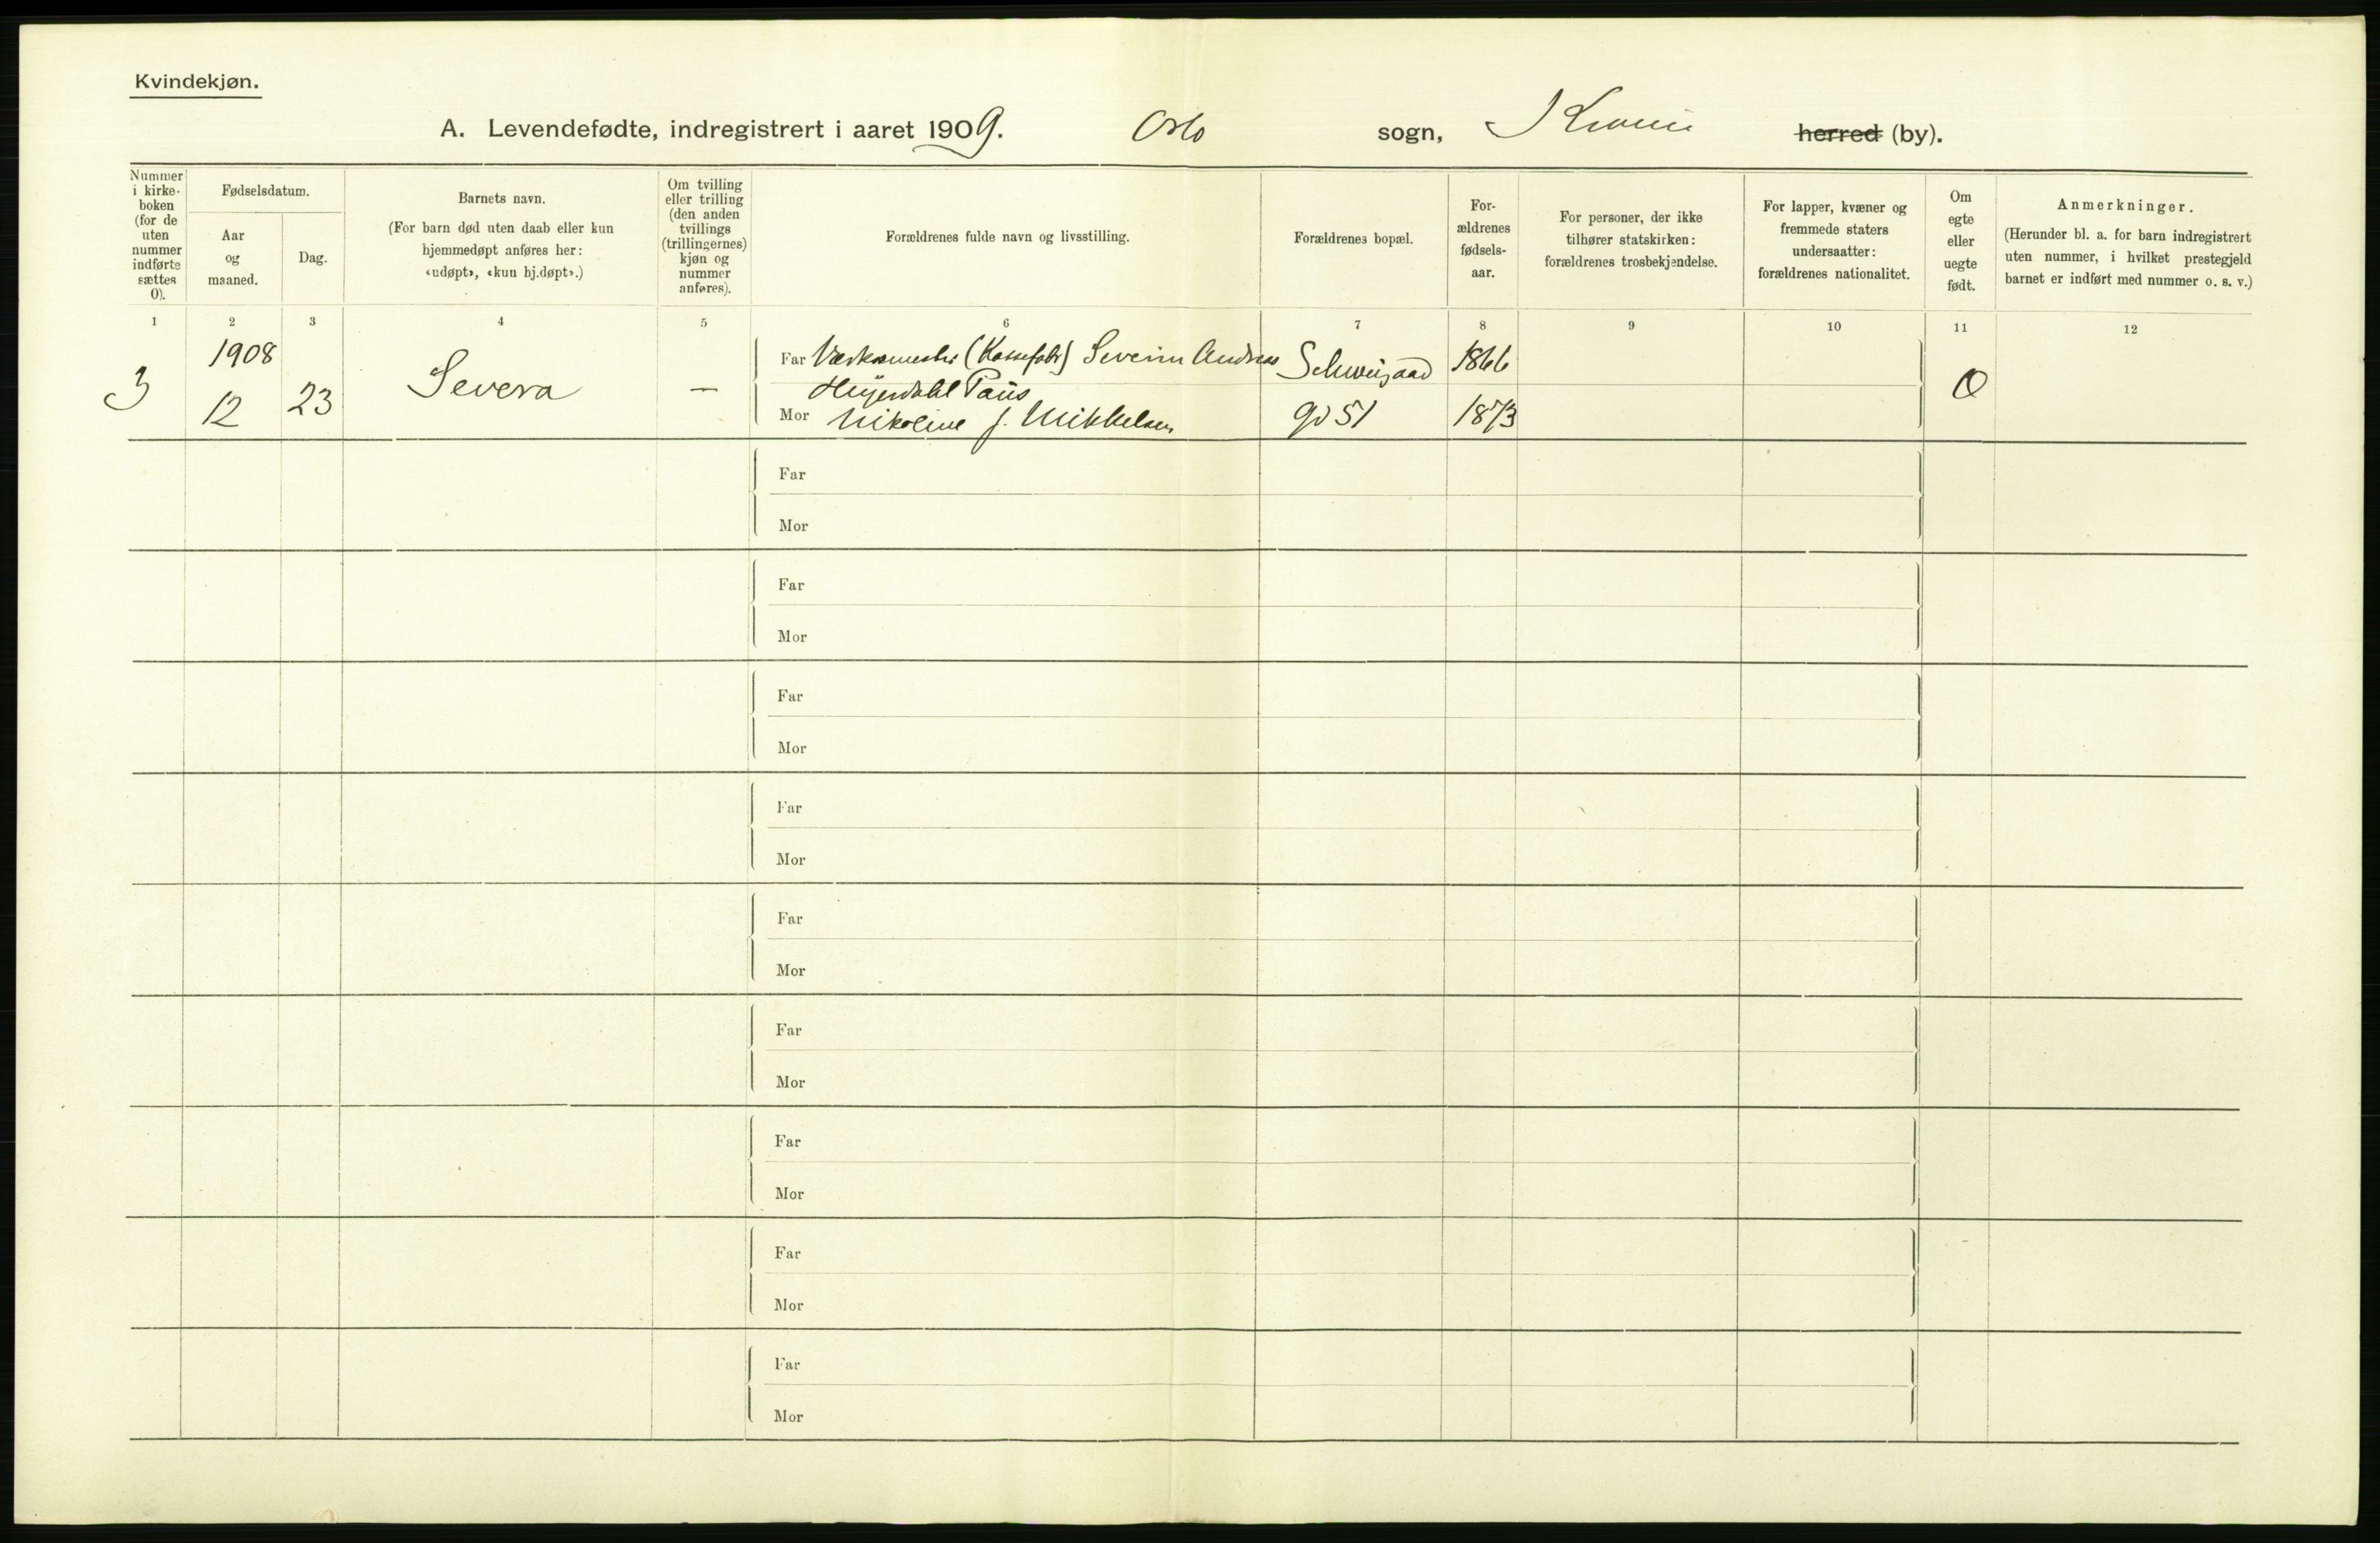 Kvindekjøn.
A. Levendefødte, indregistrert i aaret 1909. Oslo sogn, Kra herred (by).
Nummer
i kirke-
boken
(for de
uten
nummer
indførte
sættes
0).
Fødselsdatum.
Aar
og
maaned.
Dag.
Barnets navn.
(For barn død uten daab eller kun
hjemmedøpt anføres her:
«udøpt», «kun hj.døpt».)
Om tvilling
eller trilling
(den anden
tvillings
(trillingernes)
kjøn og
nummer
anføres).
Forældrenes fulde navn og livsstilling.
Forældrenes bopæl.
For-
ældrenes
fødsels-
aar.
For personer, der ikke
tilhører statskirken:
forældrenes trosbekjendelse.
For lapper, kvæner og
fremmede staters
undersaatter:
forældrenes nationalitet.
Om
egte
eller
uegte
født.
Anmerkninger.
(Herunder bl. a. for barn indregistrert
uten nummer, i hvilket prestegjeld
barnet er indført med nummer o. s. v.)
1 2 3 4 5 6 7 8 9 10 11 12
3
1908
12
23
Severa
—
Far Verksmester (Kassefabr) Severin Andreas
Heyerdahl Paus
Mor Nikoline f. Mikkelsen
Schweigaard
gd 51
1866
1873
O
Far
Mor
Far
Mor
Far
Mor
Far
Mor
Far
Mor
Far
Mor
Far
Mor
Far
Mor
Far
Mor